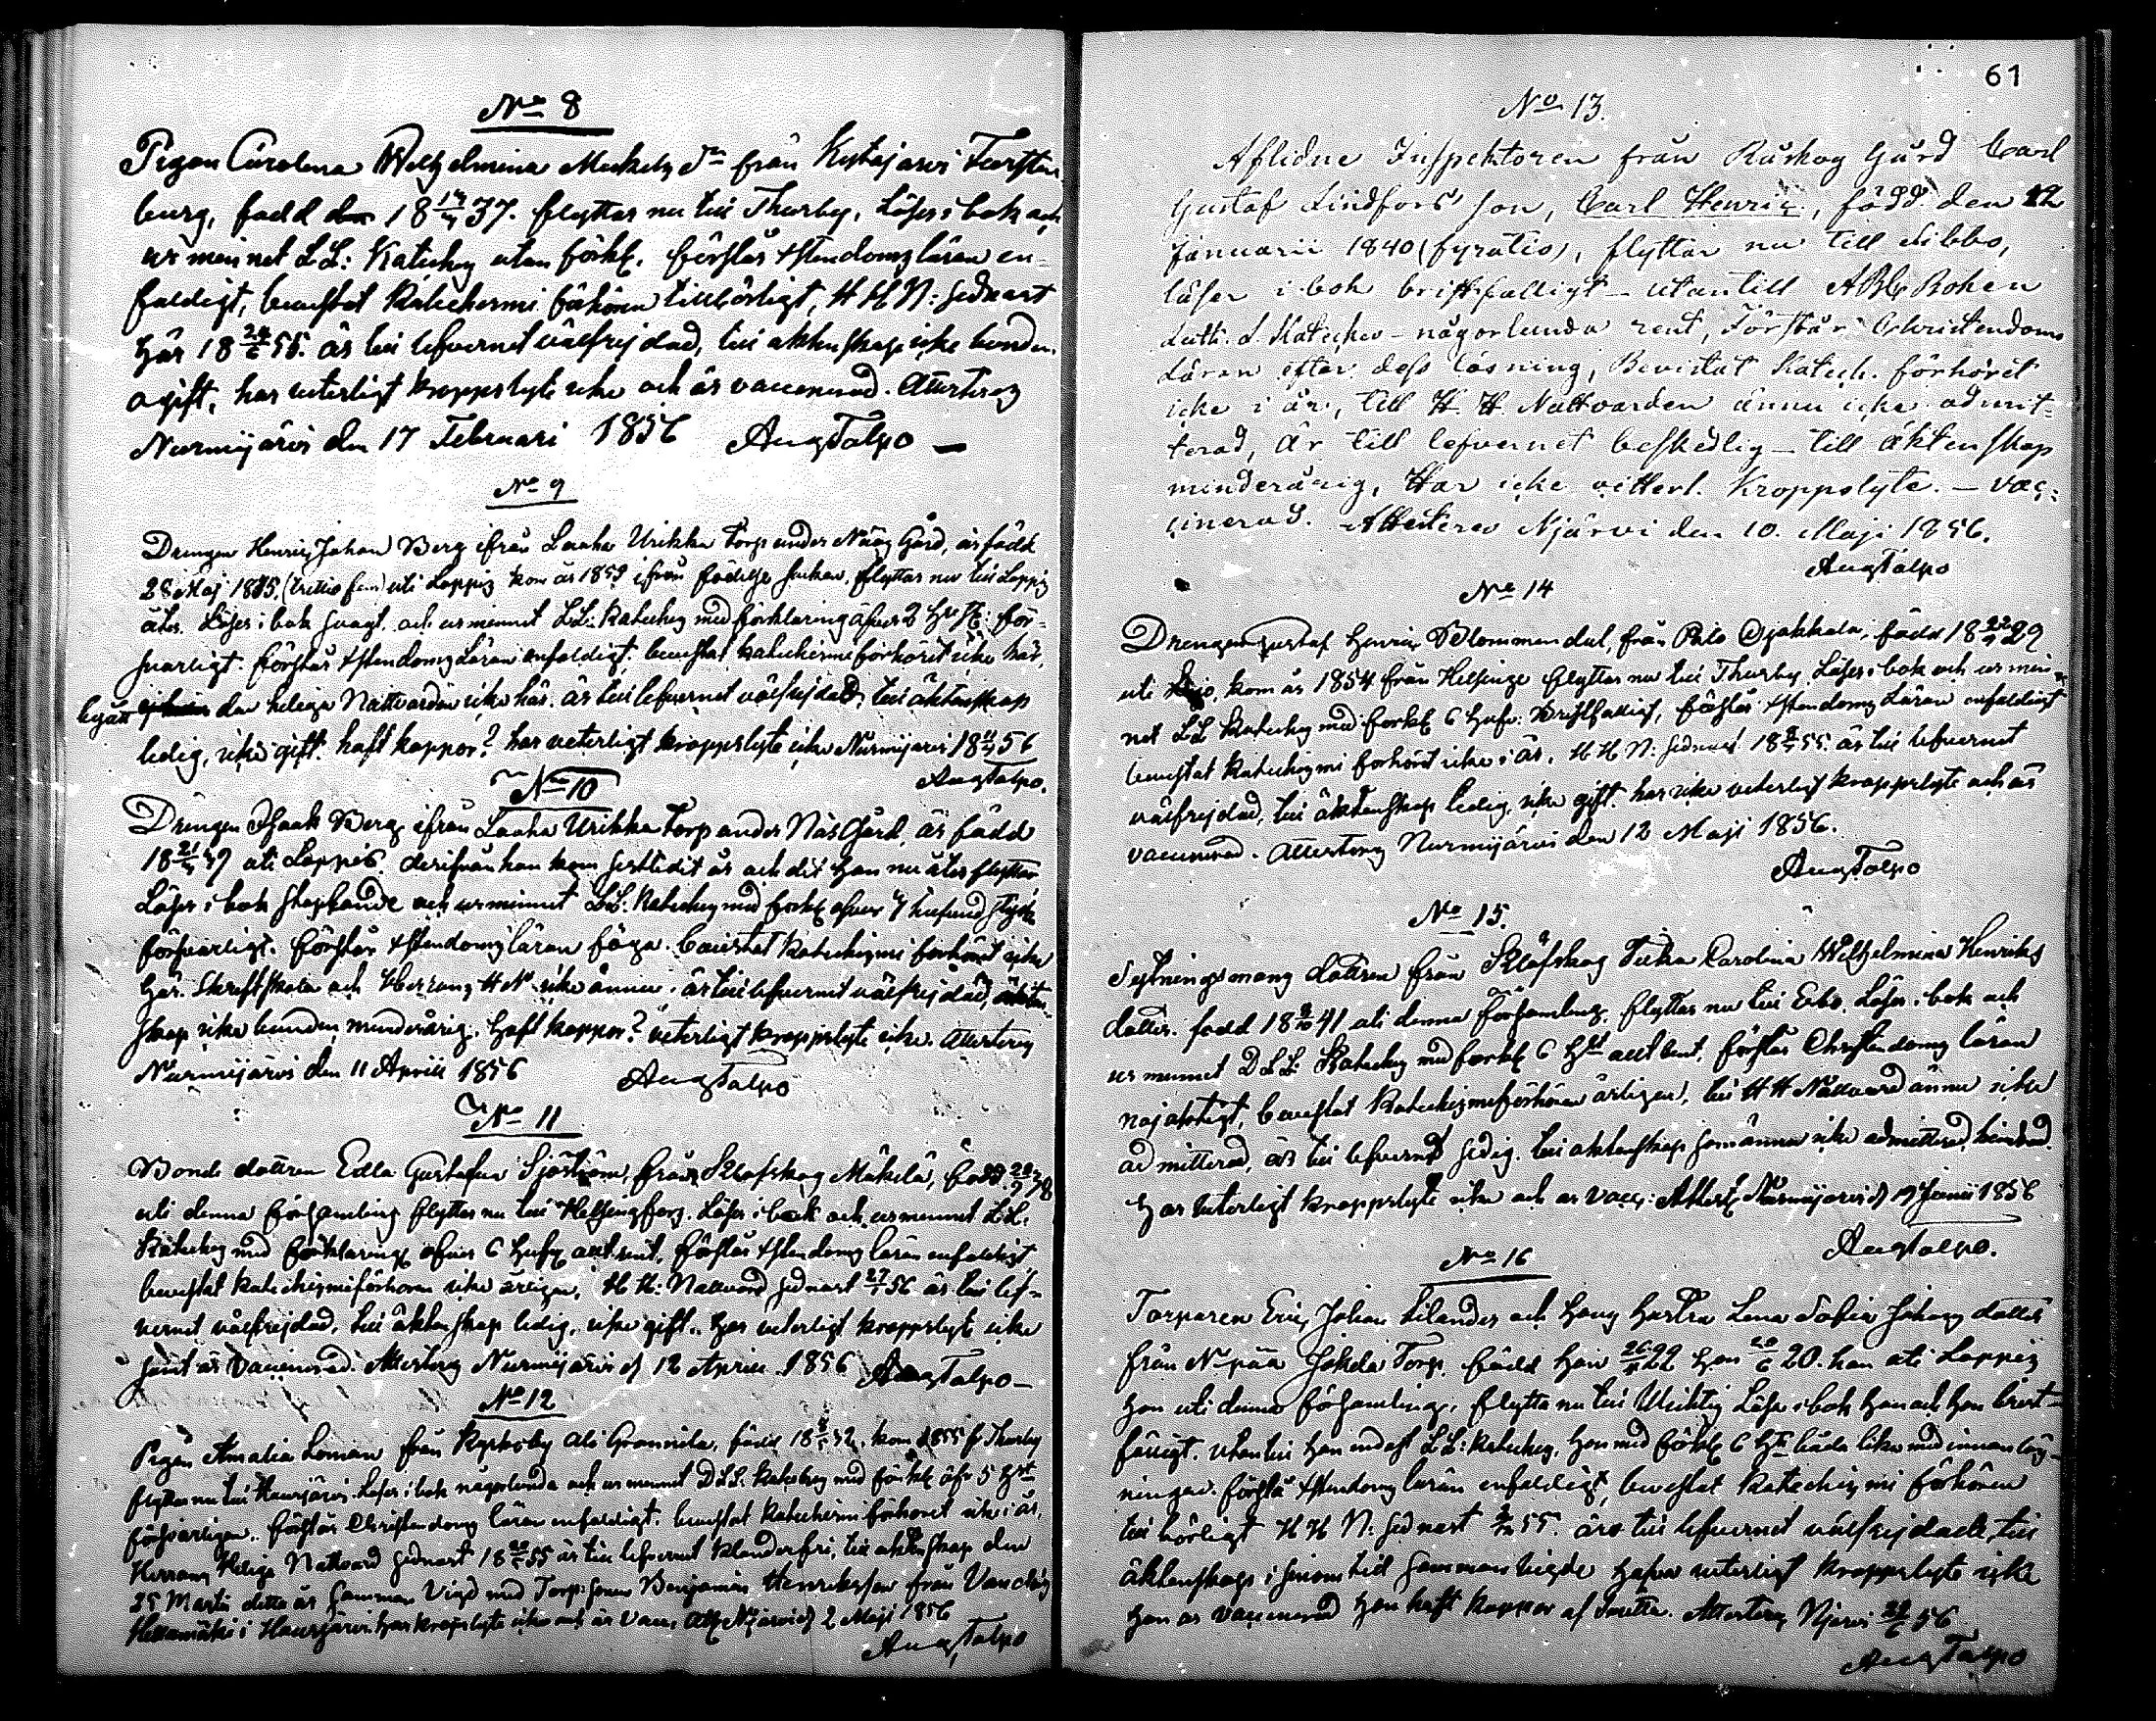 No 8
Pigan Carolina Wilhelmina Michels dr från Kytäjärvi Forsten
burg, född 18 37. flyttar nu till Thusby, Läser i bok och
ur minnet LL: Kateches utan förkl. förstår Xstendomsläran en-
faldigt, bevistat Katechismi förhören tillbörligt, H H N: sednast
här 18 24/6 55. är till lefvernet välfrejdad, till äktenskap icke bunden.
ogift, har veterligt kroppslyte icke och är vaccinerad. Attesteras
Nurmijärvi den 17 Februari 1856 Aug Talpo
No 9
Drengen Henric Johan Berg ifrån Laaha Urikka Torp under Näs Gård, är född
28 Maj 1835 (trettio fem) uti Loppis kom år 1853 ifrån födelse socken, flyttar nu till Loppis
åter. Läser i bok svagt och ur minnet LL: Kateches med förklaring öfver 2 för-
svarligt. förstår Xstendoms Läran enfaldigt. bevistat katechismi förhöret icke här,
begått den helige Nattvarden icke här. är till lefvernet välfrejdad, till äktenskap
ledig, icke gift. haft koppor? har veterligt kroppslyte icke Nurmijärvi 18 11/4 56
Aug Talpo.
No 10
Drengen Isaak Berg ifrån Laaha Urikka Torp under Näs Gård, är född
18 21/ 39 uti Loppis, derifrån han kom sistlidit år och dit han nu åter flyttar
Läser i bok stapplande och ur minnet LL: Kateches med förkl öfver 4 hufvudstycke
försvarligt. förstår Xstendoms läran föga. bevistat katechismi förhöret icke
här. Skriftskola och Herrans H N icke ännu. är till lefvernet välfrejdad, äkten-
skap icke bunden, minderårig. haft koppor? veterligt kroppslyte icke. Attesteras
Nurmijärvi den 11 Aprill 1856 Aug Talpo
No 11
Bonde dottren Edla Gustafva Sjöström, från Klöfskog Mäkelä, född 38
uti denna församling flyttar nu till Helsingfors. Läser i bok och ur minnet LL:
Kateches med förklaring öfver 6 hufs allt rent, förstår Xstendoms läran enfaldigt
bevistat katechismiförhören icke årligen, H H: Nattvard sednast 27/ 56 är till lef-
vernet välfrejdad, till äktenskap ledig, icke gift. har veterligt kroppslyte icke
samt är vaccinerad. Attesteras Nurmijärvi d 12 Aprill 1856 Aug Talpo
No 12
Pigan Amalia Loman från Ali Grannila, född 18 32, kom 1855 fr Thusby
flyttar nu till Hausjärvi. Läser i bok någorlunda och ur minnet D LL: Kateches med förkl öfr 5 Hst
försvarligen. förstår Christendoms läran enfaldigt. bevistat katechismi förhöret icke i år,
Herrans Heliga Nattvard sednast 18 55 är till lefvernet klanderfri, till äktenskap den
25 Martii detta år sammanvigd med Torp-sonen Benjamin Henriksson från
i Hausjärvi. har kroppslyte icke och är vacc. Att Njärvi d 2 Maji 1856
Aug Talpo
61
No 13.
Aflidne Inspektoren från Råskog Gård Carl
Gustaf Lindfors' son, Carl Henric, född den 12
Januarii 1840 (fyratio), flyttar nu till Sibbo,
läser i bok bristfälligt – utantill ABC Boken
Luth. L. Kateches – någorlunda rent, Förstår Christendoms
Läran efter dess läsning, Bevistat Katech. förhöret
icke i år, till H. H. Nattvarden ännu icke admit-
terad, är till lefvernet beskedlig – till äktenskap
minderårig, Har icke vitterl. kroppslyte. – vac-
cinerad. Attesteras Njärvi den 10. Maji 1856.
Aug Talpo
No 14
Drengen Gustaf Henric Blommendal, från Palo Ojakkala, född 18 29
uti kom år 1854 från Helsinge flyttar nu till Thusby. Läser i bok och ur min-
net LL Kateches med förkl 6 Hufv: bristfälligt, förstår Xstendoms Läran enfaldigt
bevistat Katechismi förhöret icke i år. H H N: sednast 18 55. är till lefvernet
välfrejdad, till äktenskap ledig, icke gift. har icke veterligt kroppslyte och är
vaccinerad. Attesteras Nurmijärvi den 12 Maji 1856.
Aug Talpo
No 15.
dottren från Klöfskog Carolina Wilhelmina Henriks
dotter. född 18 41 uti denna församling. flyttar nu till Esbo. Läser i bok och
ur minnet D LL: Kateches med förkl 6 Hst allt rent, förstår Christendoms läran
nöjaktigt, bevistat Katechismiförhören årligen, till H H Nattvard ännu icke
admitterad, är till lefvernet sedig. till äktenskap som ännu icke admitterad, hindrad.
har veterligt kroppslyte icke och är vacc: Attest Nurmijärvi d 19 Junii 1856
Aug Talpo.
No 16
Torparen Eric Johan Silander och hans hustru Lena Sofia Johans dotter
från N-pää Jokela Torp. född han 26/ 22 hon 20/6 20. han uti Loppis
hon uti denna församling, flytta nu till Wichtis Läser i bok han och hon brist-
fälligt. utantill han endast LL: Kateches, hon med förkl 6 Hst båda lika med innanläs-
ningen. förstå Xstendoms läran enfaldigt, bevistat Katechismi förhören
tillbörligt H H N: sednast 55. äro till lefvernet välfrejdade, till
äktenskap i sinom tid sammanvigde hafva veterligt kroppslyte icke
han är vaccinerad hon haft koppor af Attesteras Njärvi 56
Aug Talpo